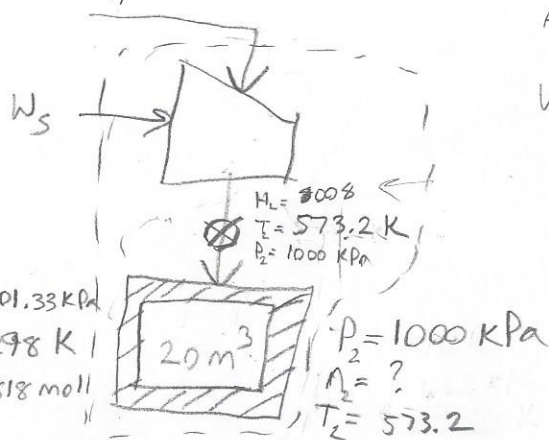 W_S
H_2 = 8008
T_2 = 573.2 K
P_2 = 1000 KPa
01.33 KPa
298 K
818 moll
20 m^3
P_2 = 1000 KPa
n_2 = ?
T_2 = 573.2